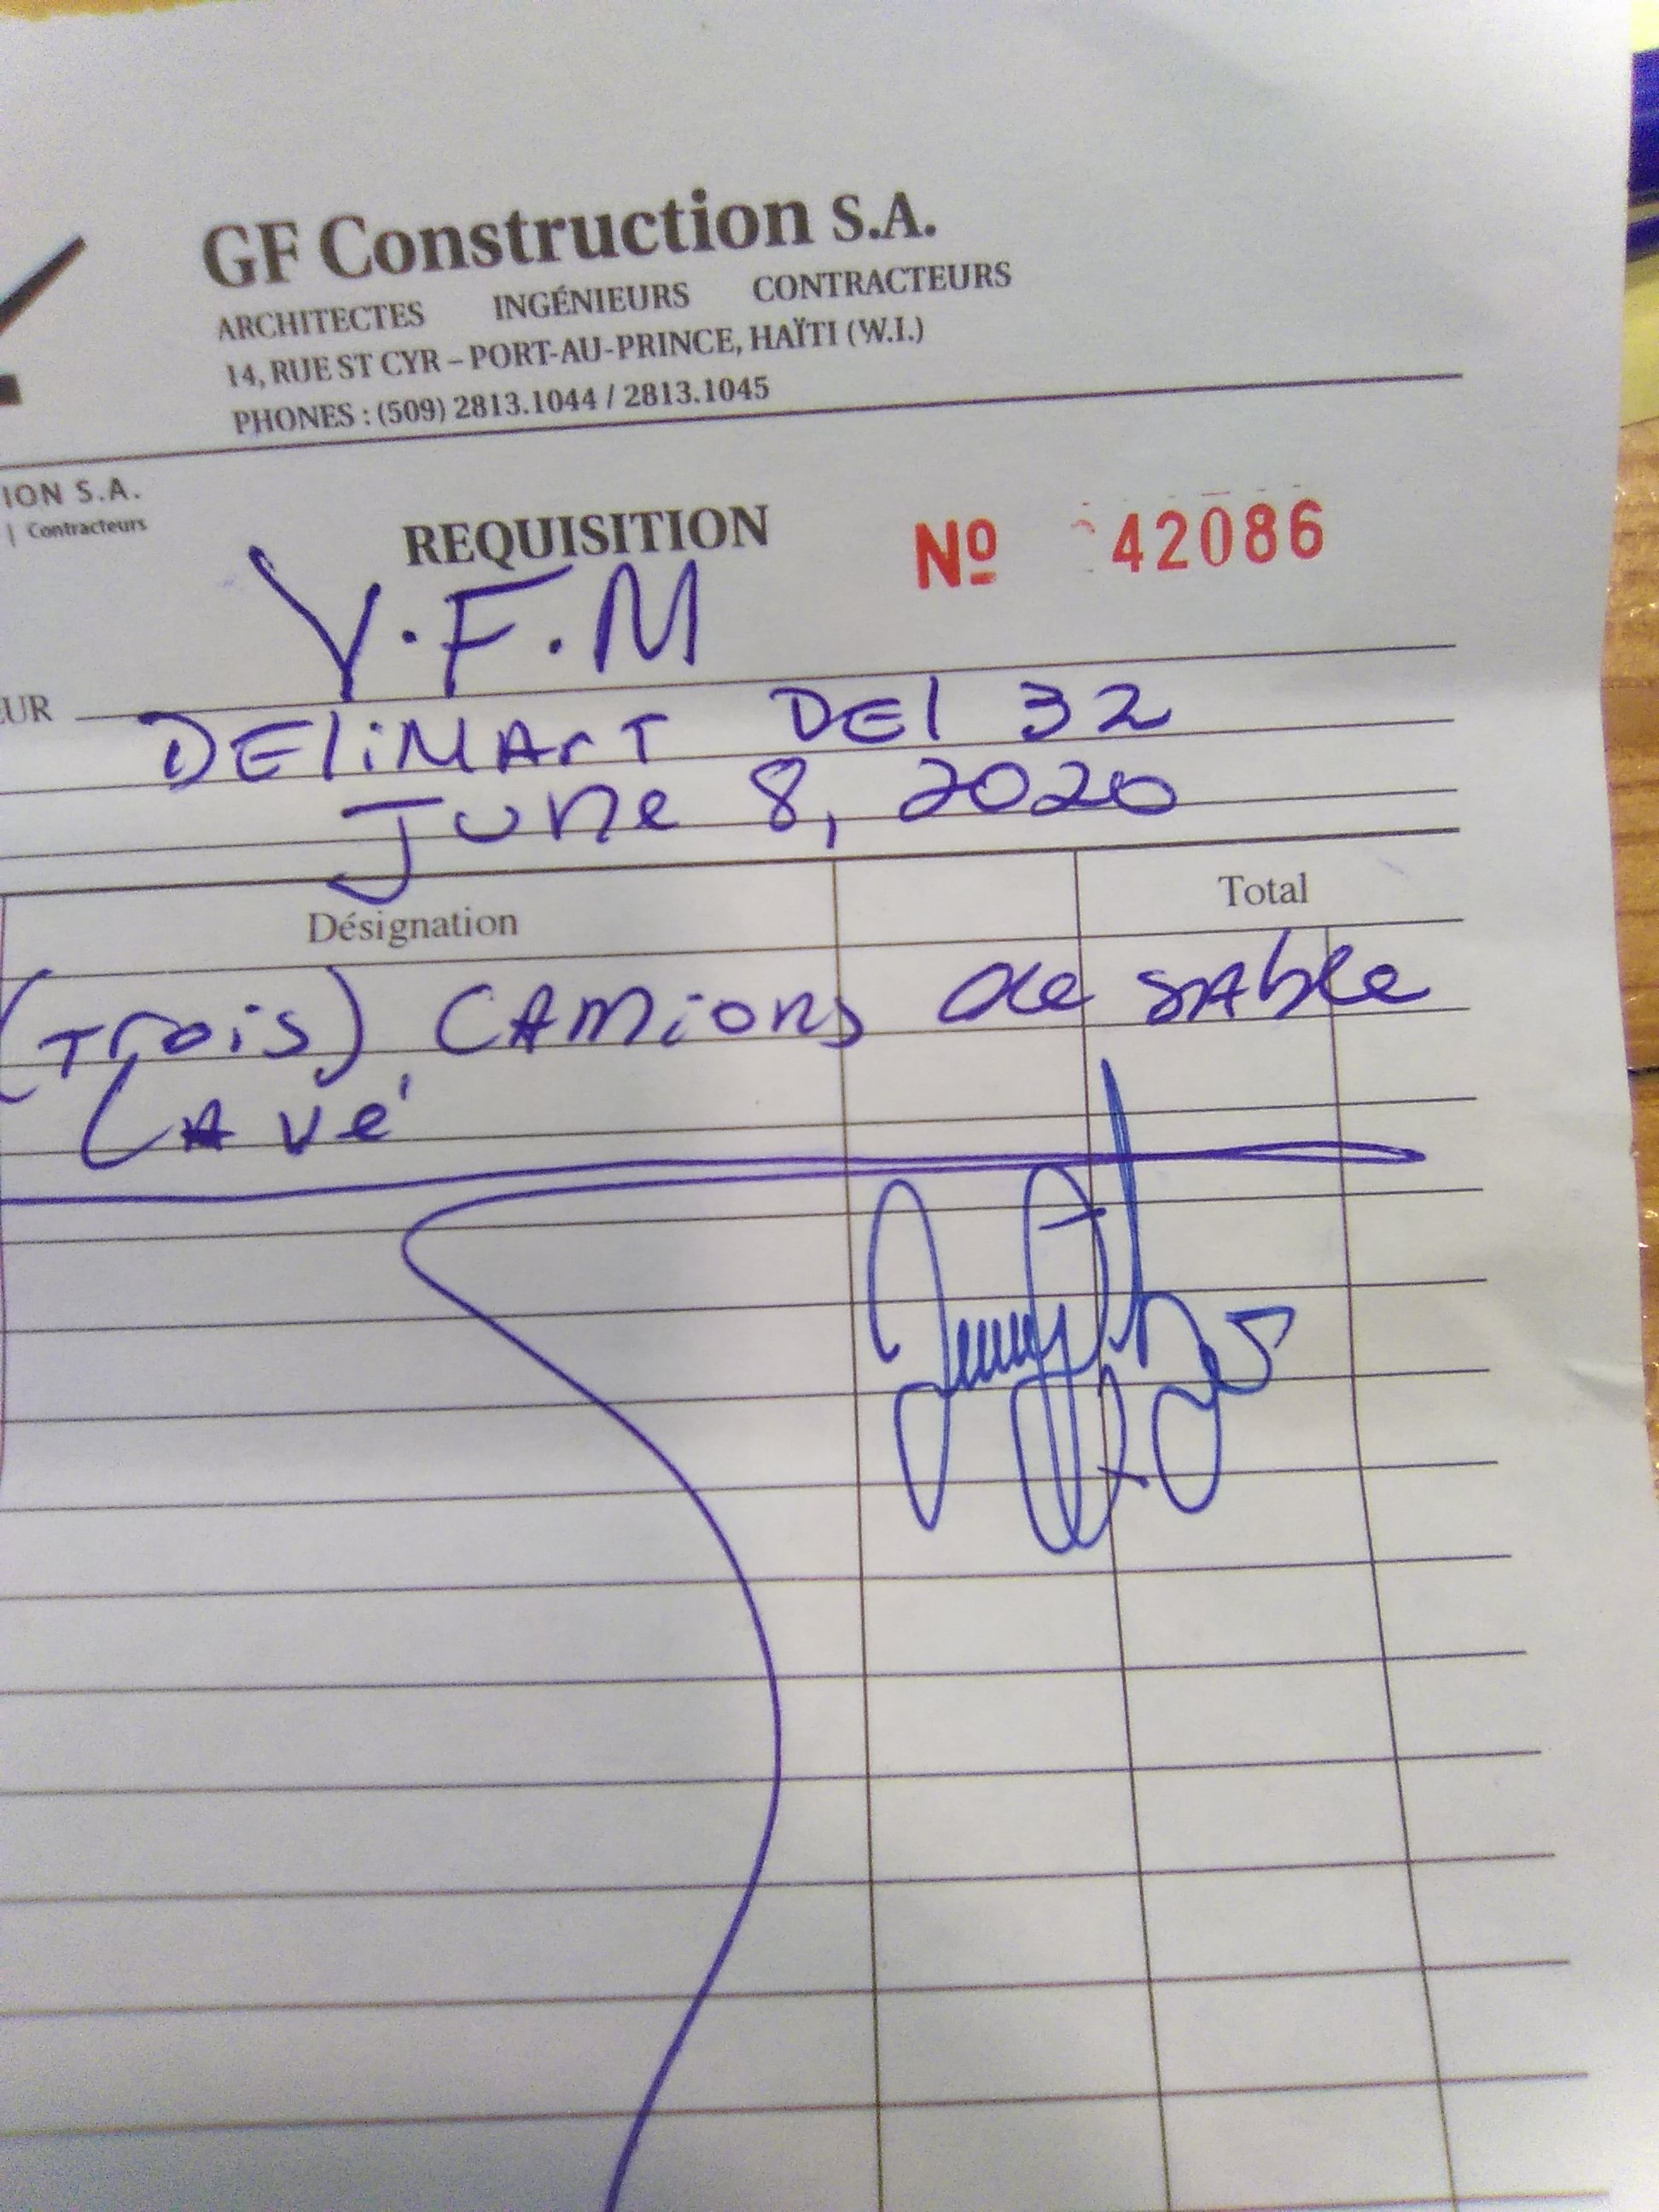 GF Construction S.A.
ARCHITECTES INGÉNIEURS CONTRACTEURS
14, RUE ST CYR – PORT-AU-PRINCE, HAÏTI (W.I.)
PHONES : (509) 2813.1044 / 2813.1045
ION S.A.
| Contracteurs
REQUISITION Nº 42086
Y.F.M
EUR
DEliMArT DEl 32
June 8, 2020
Désignation Total
(Trois) CAMions de sable
LAvé